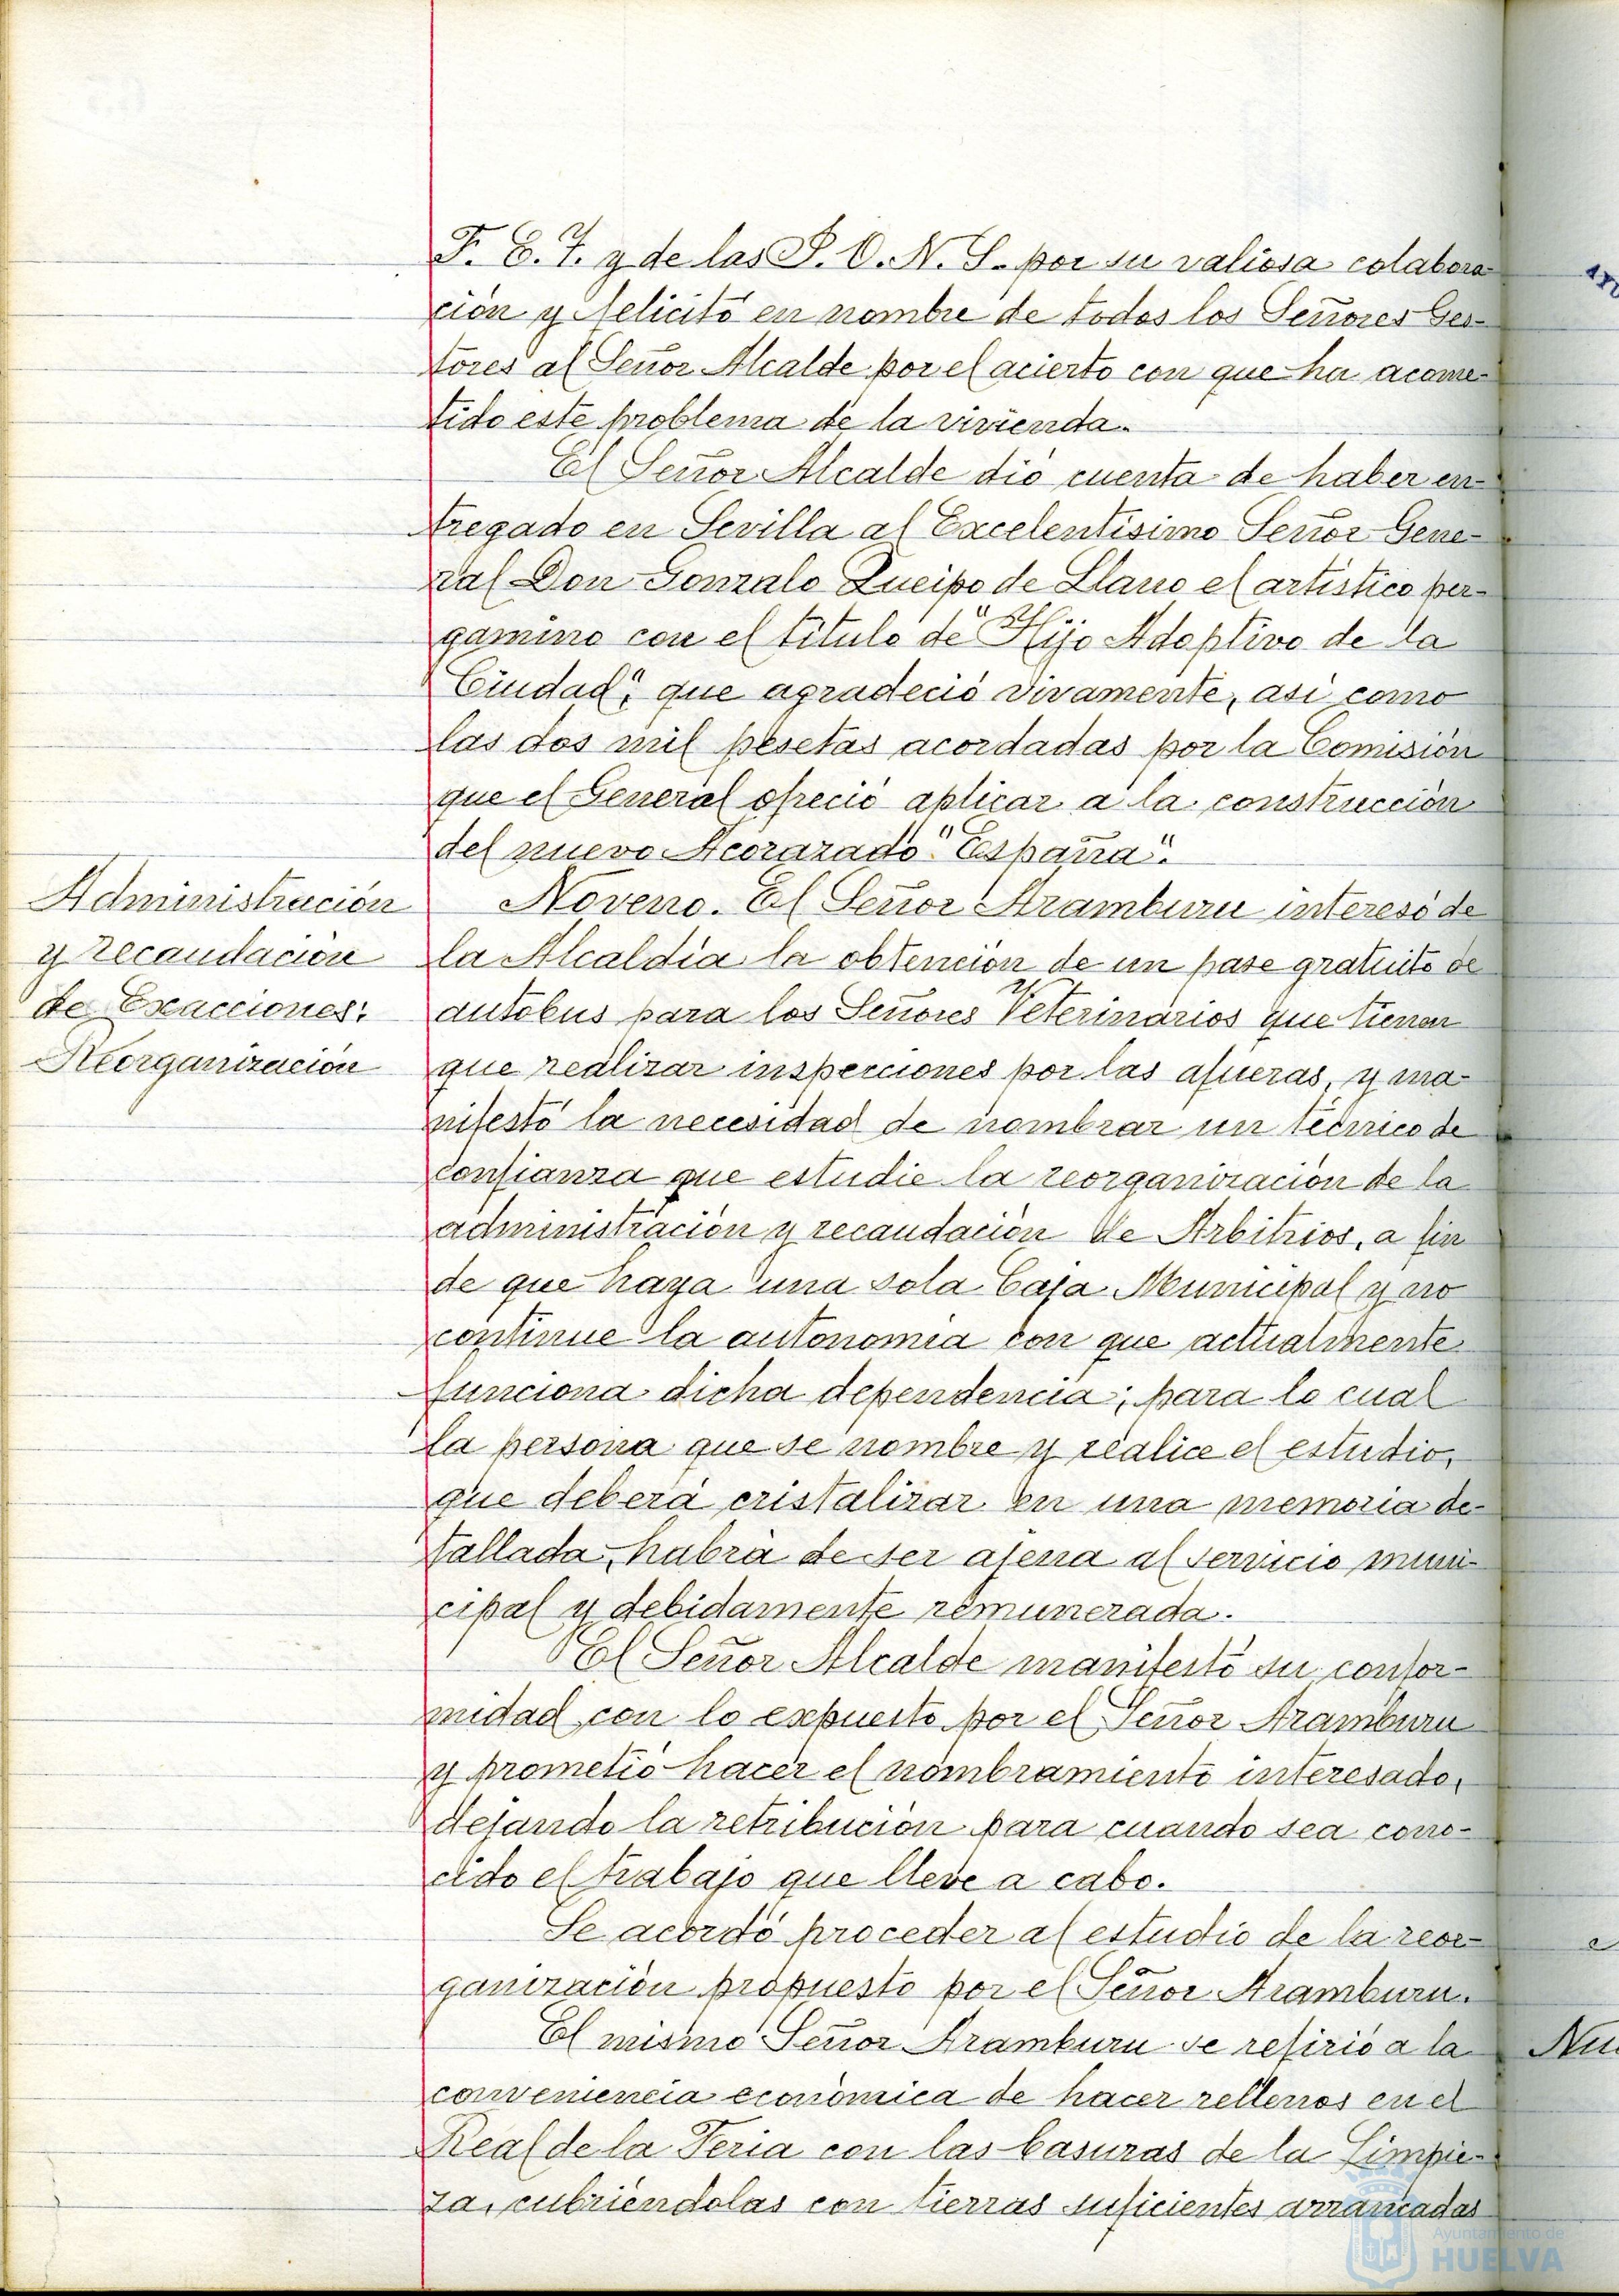 F. E. T. y de las J. O. N. S. por su valiosa colabora-
ción y felicitó en nombre de todos los Señores Ges-
tores al Señor Alcalde por el acierto con que ha acome-
tido este problema de la vivienda.
El Señor Alcalde dió cuenta de haber en-
tregado en Sevilla al Excelentísimo Señor Gene-
ral Don Gonzalo Queipo de Llano el artístico per-
gamino con el título de "Hijo Adoptivo de la
Ciudad", que agradeció vivamente, así como
las dos mil pesetas acordadas por la Comisión
que el General ofreció aplicar a la construcción
del nuevo Acorazado "España".
Administración
y recaudación
de Exacciones:
Reorganización
Noveno. El Señor Aramburu interesó de
la Alcaldía la obtención de un pase gratuito de
autobus para los Señores Veterinarios que tienen
que realizar inspecciones por las afueras, y ma-
nifestó la necesidad de nombrar un técnico de
confianza que estudie la reorganización de la
administración y recaudación de Arbitrios, a fin
de que haya una sola Caja Municipal y no
continue la autonomía con que actualmente
funciona dicha dependencia; para lo cual
la persona que se nombre y realice el estudio,
que deberá cristalizar en una memoria de-
tallada, habrá de ser ajena al servicio muni-
cipal y debidamente remunerada.
El Señor Alcalde manifestó su confor-
midad con lo expuesto por el Señor Aramburu
y prometió hacer el nombramiento interesado,
dejando la retribución para cuando sea cono-
cido el trabajo que lleve a cabo.
Se acordó proceder al estudio de la reor-
ganización propuesto por el Señor Aramburu.
El mismo Señor Aramburu se refirió a la
conveniencia económica de hacer rellenos en el
Real de la Feria con las basuras de la Limpie-
za, cubriéndolas con tierras suficientes arrancadas
Nu
Ayuntamiento de
HUELVA